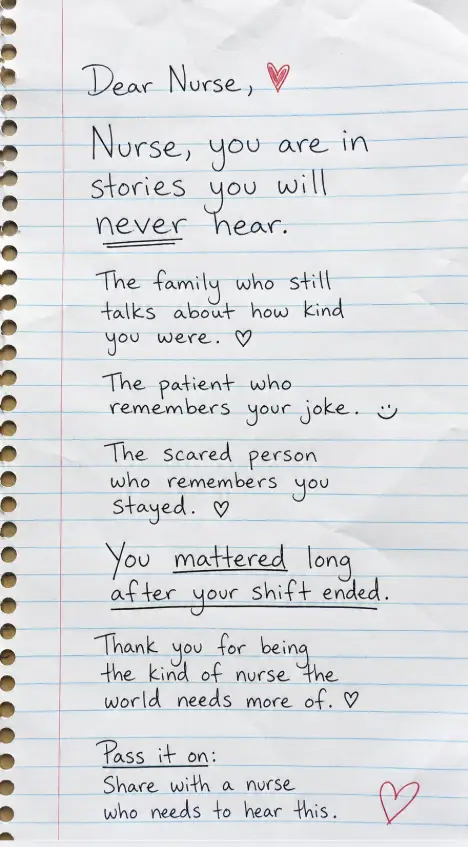 Dear Nurse,
Nurse, you are in
stories you will
never hear.
The family who still
talks about how kind
you were.
The patient who
remembers your joke.
The scared person
who remembers you
stayed.
You mattered long
after your shift ended.
Thank you for being
the kind of nurse the
world needs more of.
Pass it on:
Share with a nurse
who needs to hear this.